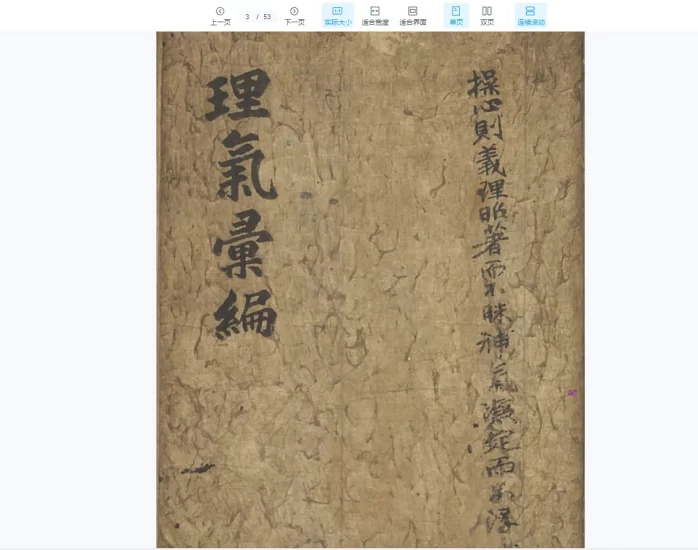 上一页 3 / 53 下一页 实际大小 适合宽度 适合界面 单页 双页 连续滚动
操心則義理昭著而不昧神氣凝定而不浮
理氣彙編